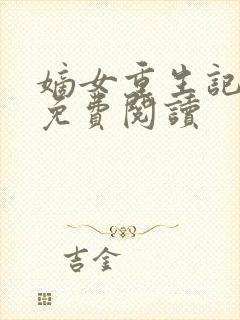 嫡女重生記
免費閱讀
吉金